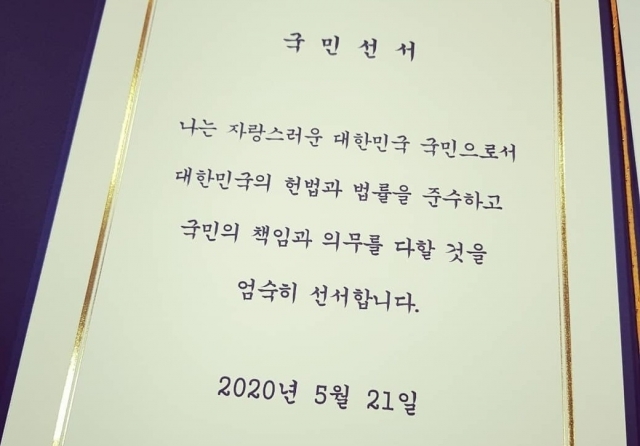 국 민 선 서
나는 자랑스러운 대한민국 국민으로서
대한민국의 헌법과 법률을 준수하고
국민의 책임과 의무를 다할 것을
엄숙히 선서합니다.
2020년 5월 21일